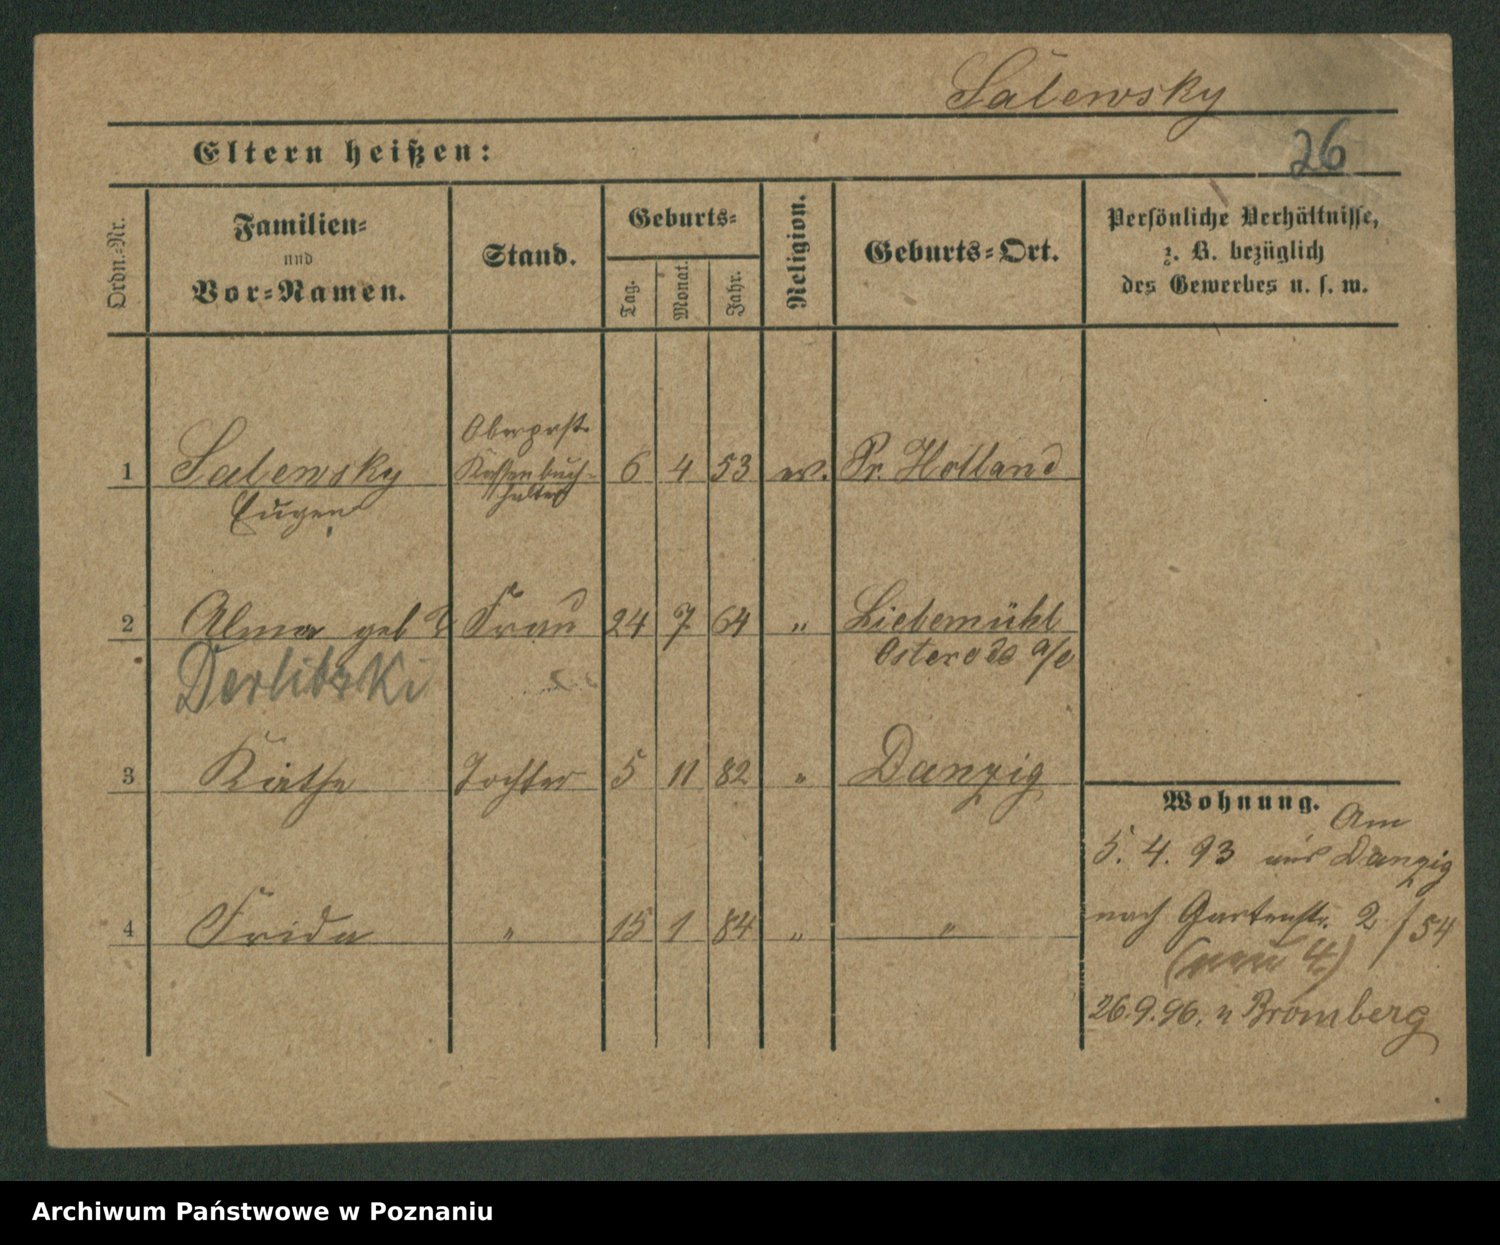 Salewsky
Eltern heißen:
26
Ordn.-Nr.
Familien-
und
Vor-Namen.
Stand.
Geburts-
Tag.
Monat.
Jahr.
Religion.
Geburts-Ort.
Persönliche Verhältnisse,
z. B. bezüglich
des Gewerbes u. s. w.
Oberpost-
1 Salewsky Kassenbuch- 6 4 53 ev. Pr. Holland
Eugen halter
2 Alma geb ? Frau 24 7 64 " Liebemühl
Derlitzki Osterode a/o
3 Käthe Tochter 5 11 82 " Danzig
Wohnung.
Am
5. 4. 93 aus Danzig
nach Gartenstr. 2 / 54
4 Frida " 15 1 84 " "
(neu 4.)
26.9.96. n Bromberg
Archiwum Państwowe w Poznaniu